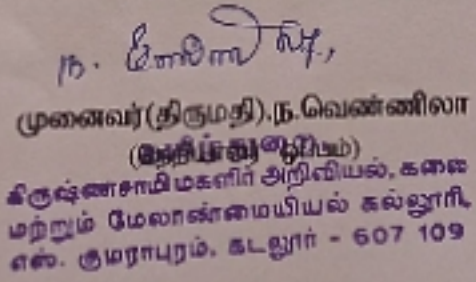 ந. வெண்ணிலா,
முனைவர்(திருமதி).ந.வெண்ணிலா
கிருஷ்ணசாமி மகளிர் அறிவியல், கலை
மற்றும் மேலாண்மையியல் கல்லூரி,
எஸ். குமராபுரம், கடலூர் - 607 109